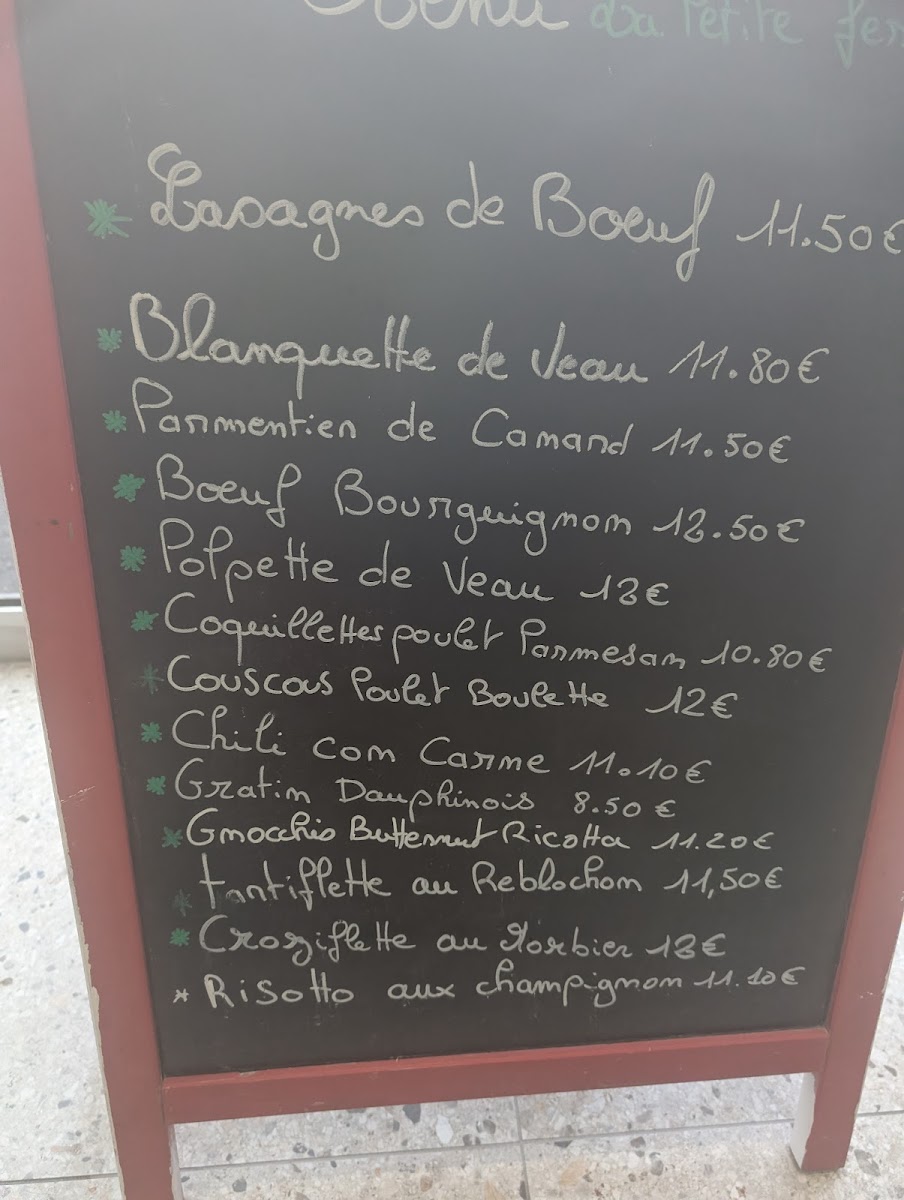 Menu La Petite fer
Lasagnes de Boeuf 11.50€
Blanquette de Veau 11.80€
Parmentier de Canard 11.50€
Boeuf Bourguignon 12.50€
Polpette de Veau 12€
Coquillettes poulet Parmesan 10.80€
Couscous Poulet Boulette 12€
Chili con Carne 11.10€
Gratin Dauphinois 8.50€
Gnocchis Butternut Ricotta 11.20€
tartiflette au Reblochon 11,50€
Croziflette au Morbier 12€
* Risotto aux champignon 11.10€